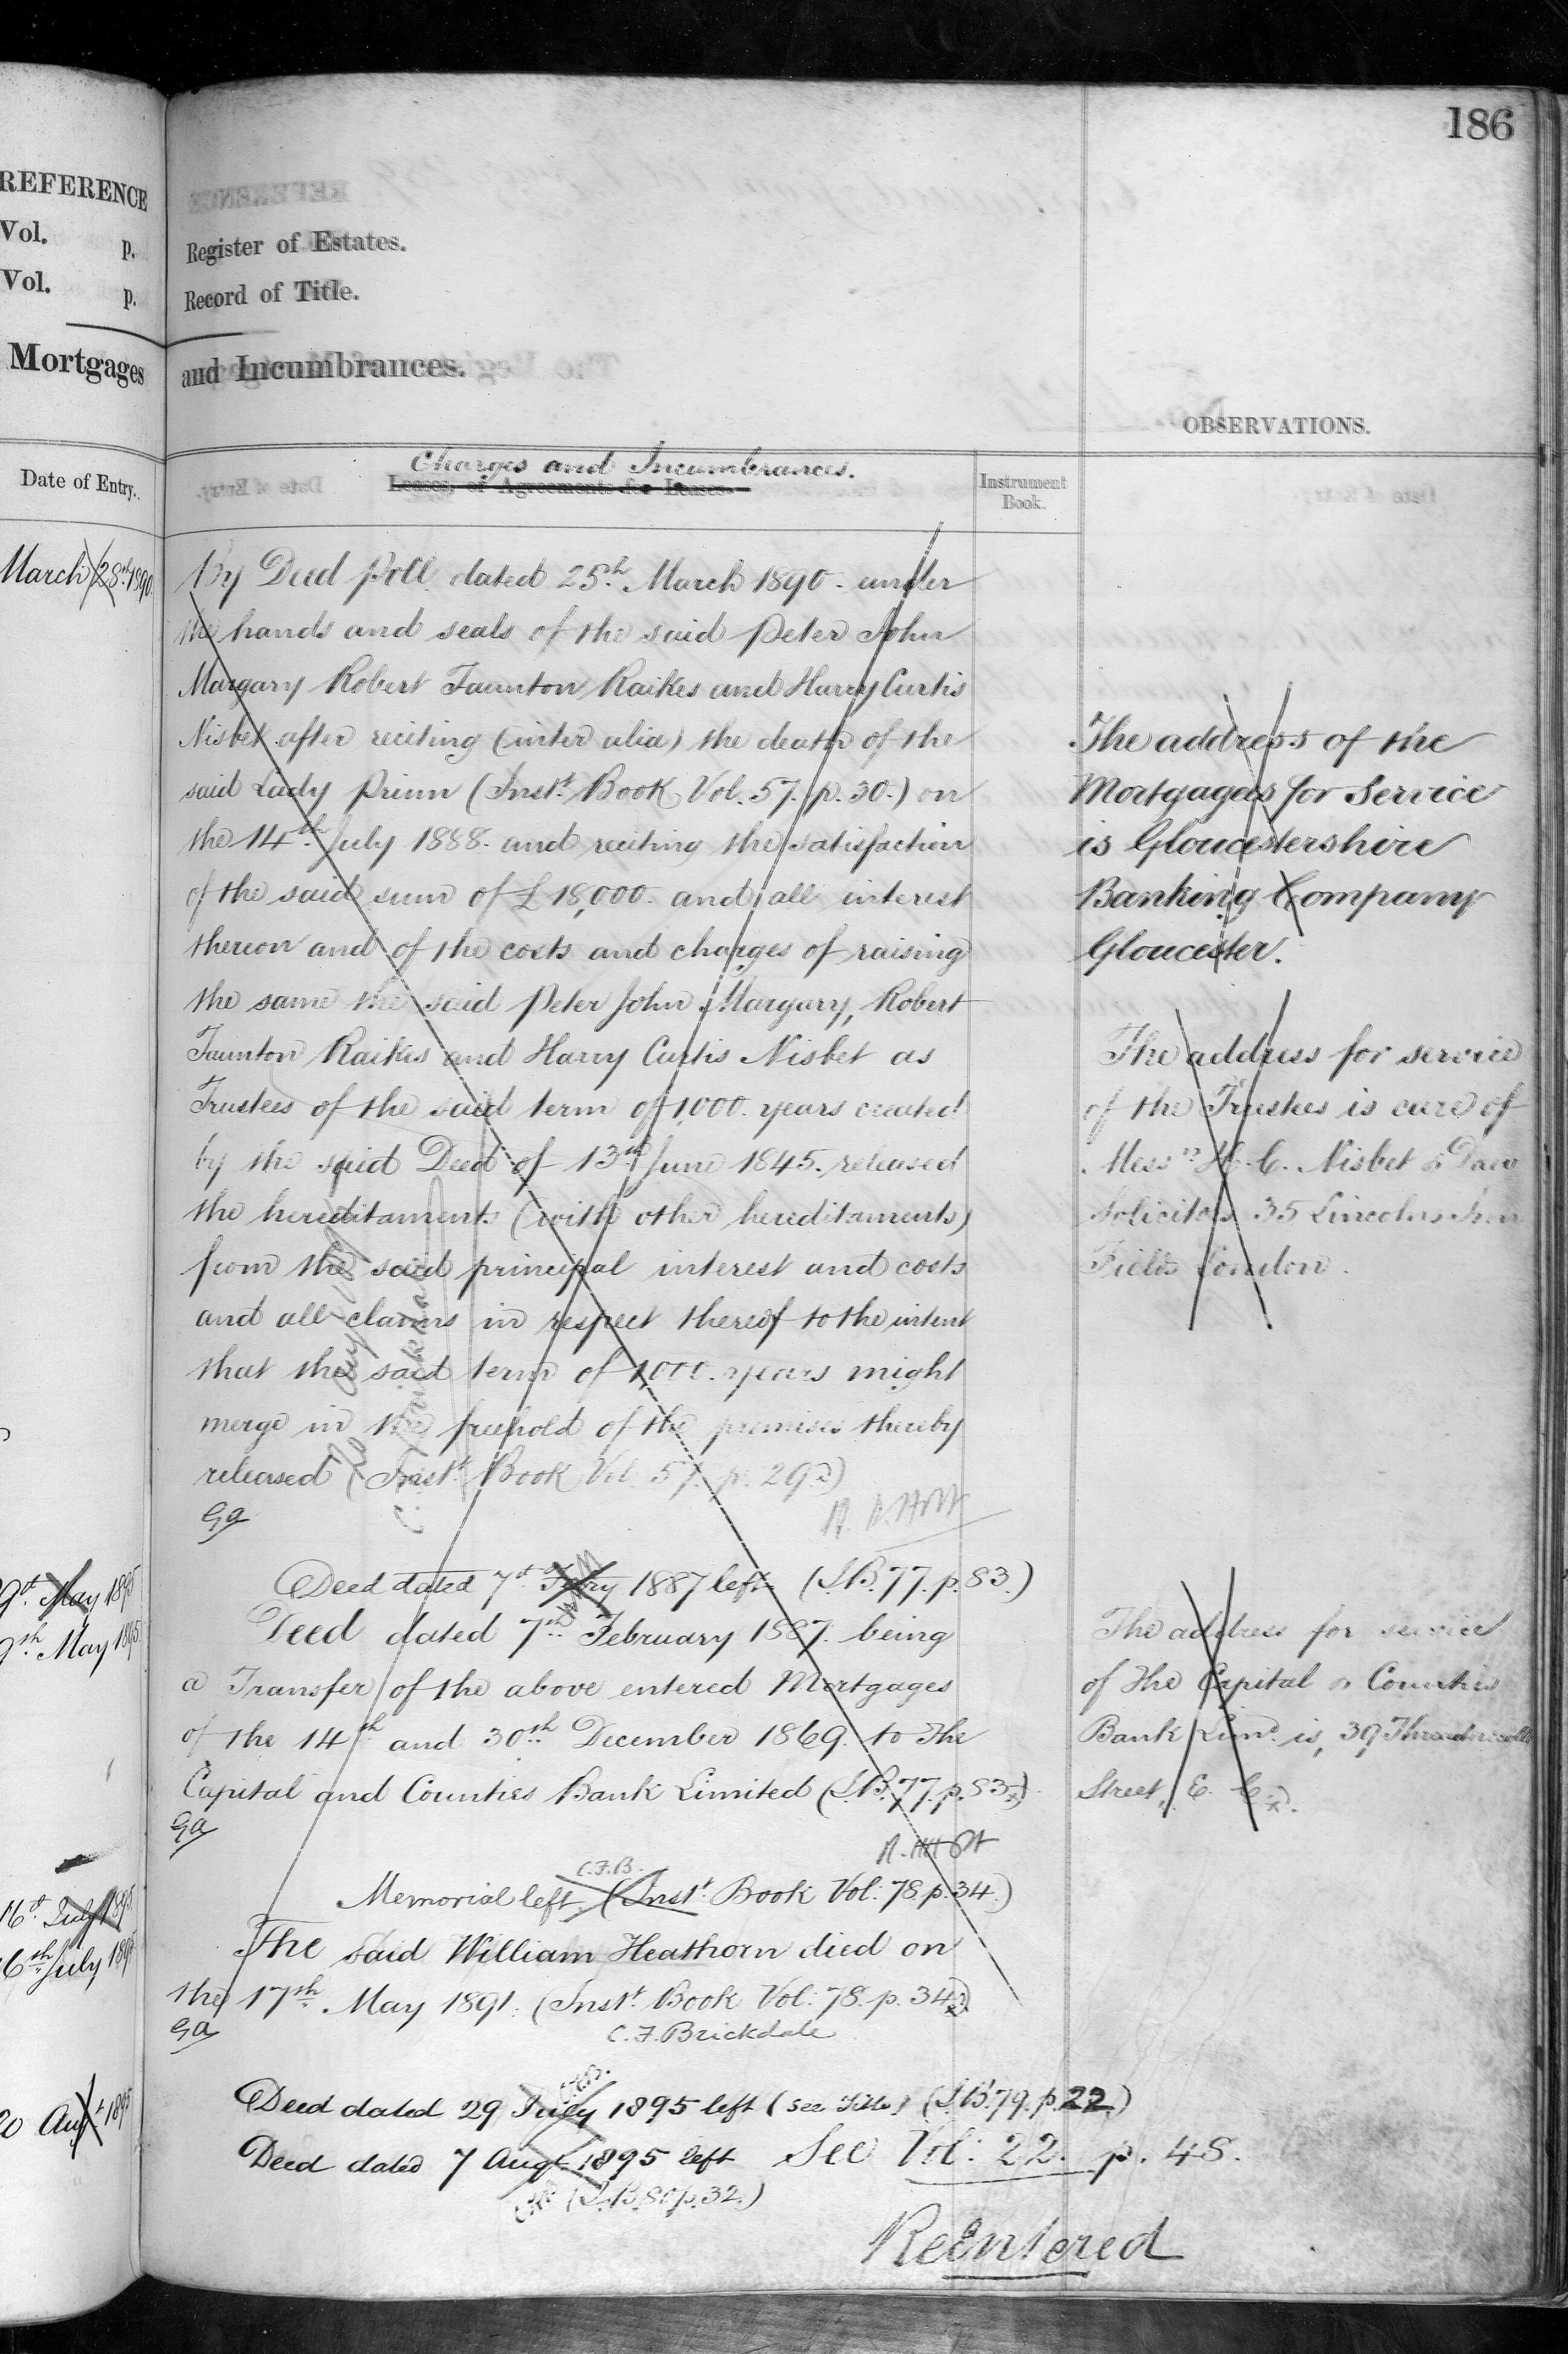 186
REFERENCE
Vol. p.
Vol. p.
Mortgages
Register of Estates.
Record of Title.
and Incumbrances.
OBSERVATIONS.
Date of Entry.
Charges and Incumbrances.
Leases, or Agreements for Leases.
Instrument
Book.
March 28th 1890
By Deed Poll dated 25th March 1890 - under
the hands and seals of the said Peter John
Margary Robert Taunton Raikes and Harry Curtis
Nisbet after reciting (inter alia) the death of the
said Lady Prinn (Instt Book Vol. 57. p. 30.) on
the 14th July 1888. and reciting the satisfaction
of the said sum of £18,000. and all interest
thereon and of the costs and charges of raising
the same the said Peter John Margary, Robert
Taunton Raikes and Harry Curtis Nisbet as
Trustees of the said term of 1000. years created
by the said Deed of 13th June 1845. released
the hereditaments (with other hereditaments)
from the said principal interest and costs
and all claims in respect thereof to the intent
that the said term of 1,000. years might
merge in the freehold of the premises thereby
released (Instt Book Vol. 57. p. 29.)
Ga
The address of the
Mortgagees for Service
is Gloucestershire
Banking Company
Gloucester.
The address for service
of the Trustees is care of
Messrs H. C. Nisbet & Daw
Solicitors 35 Lincolns Inn
Fields London.
9th May 1895
9th May 1895
Deed dated 7th Febry 1887 left (I.B. 77. p. 83.)
Deed dated 7th February 1887. being
a Transfer of the above entered Mortgages
of the 14th and 30th December 1869. to The
Capital and Counties Bank Limited (I.B. 77. p. 83.)
Ga
The address for service
of The Capital & Counties
Bank Limd. is, 39 Threadneedle
Street, E. C.
16th July 1895
16th July 1895
C.F.B.
Memorial left. (Instt Book Vol: 78. p. 34.)
The said William Heathorn died on
the 17th May 1891. (Instt Book Vol: 78. p. 34.)
Ga
C. F. Brickdale
20 Augt 1895
Deed dated 29 July 1895 left (see Title) (I.B. 79. p. 22.)
Deed dated 7 Augt 1895 left See Vol: 22. p. 48.
(I.B. 80 p. 32.)
ReEntered